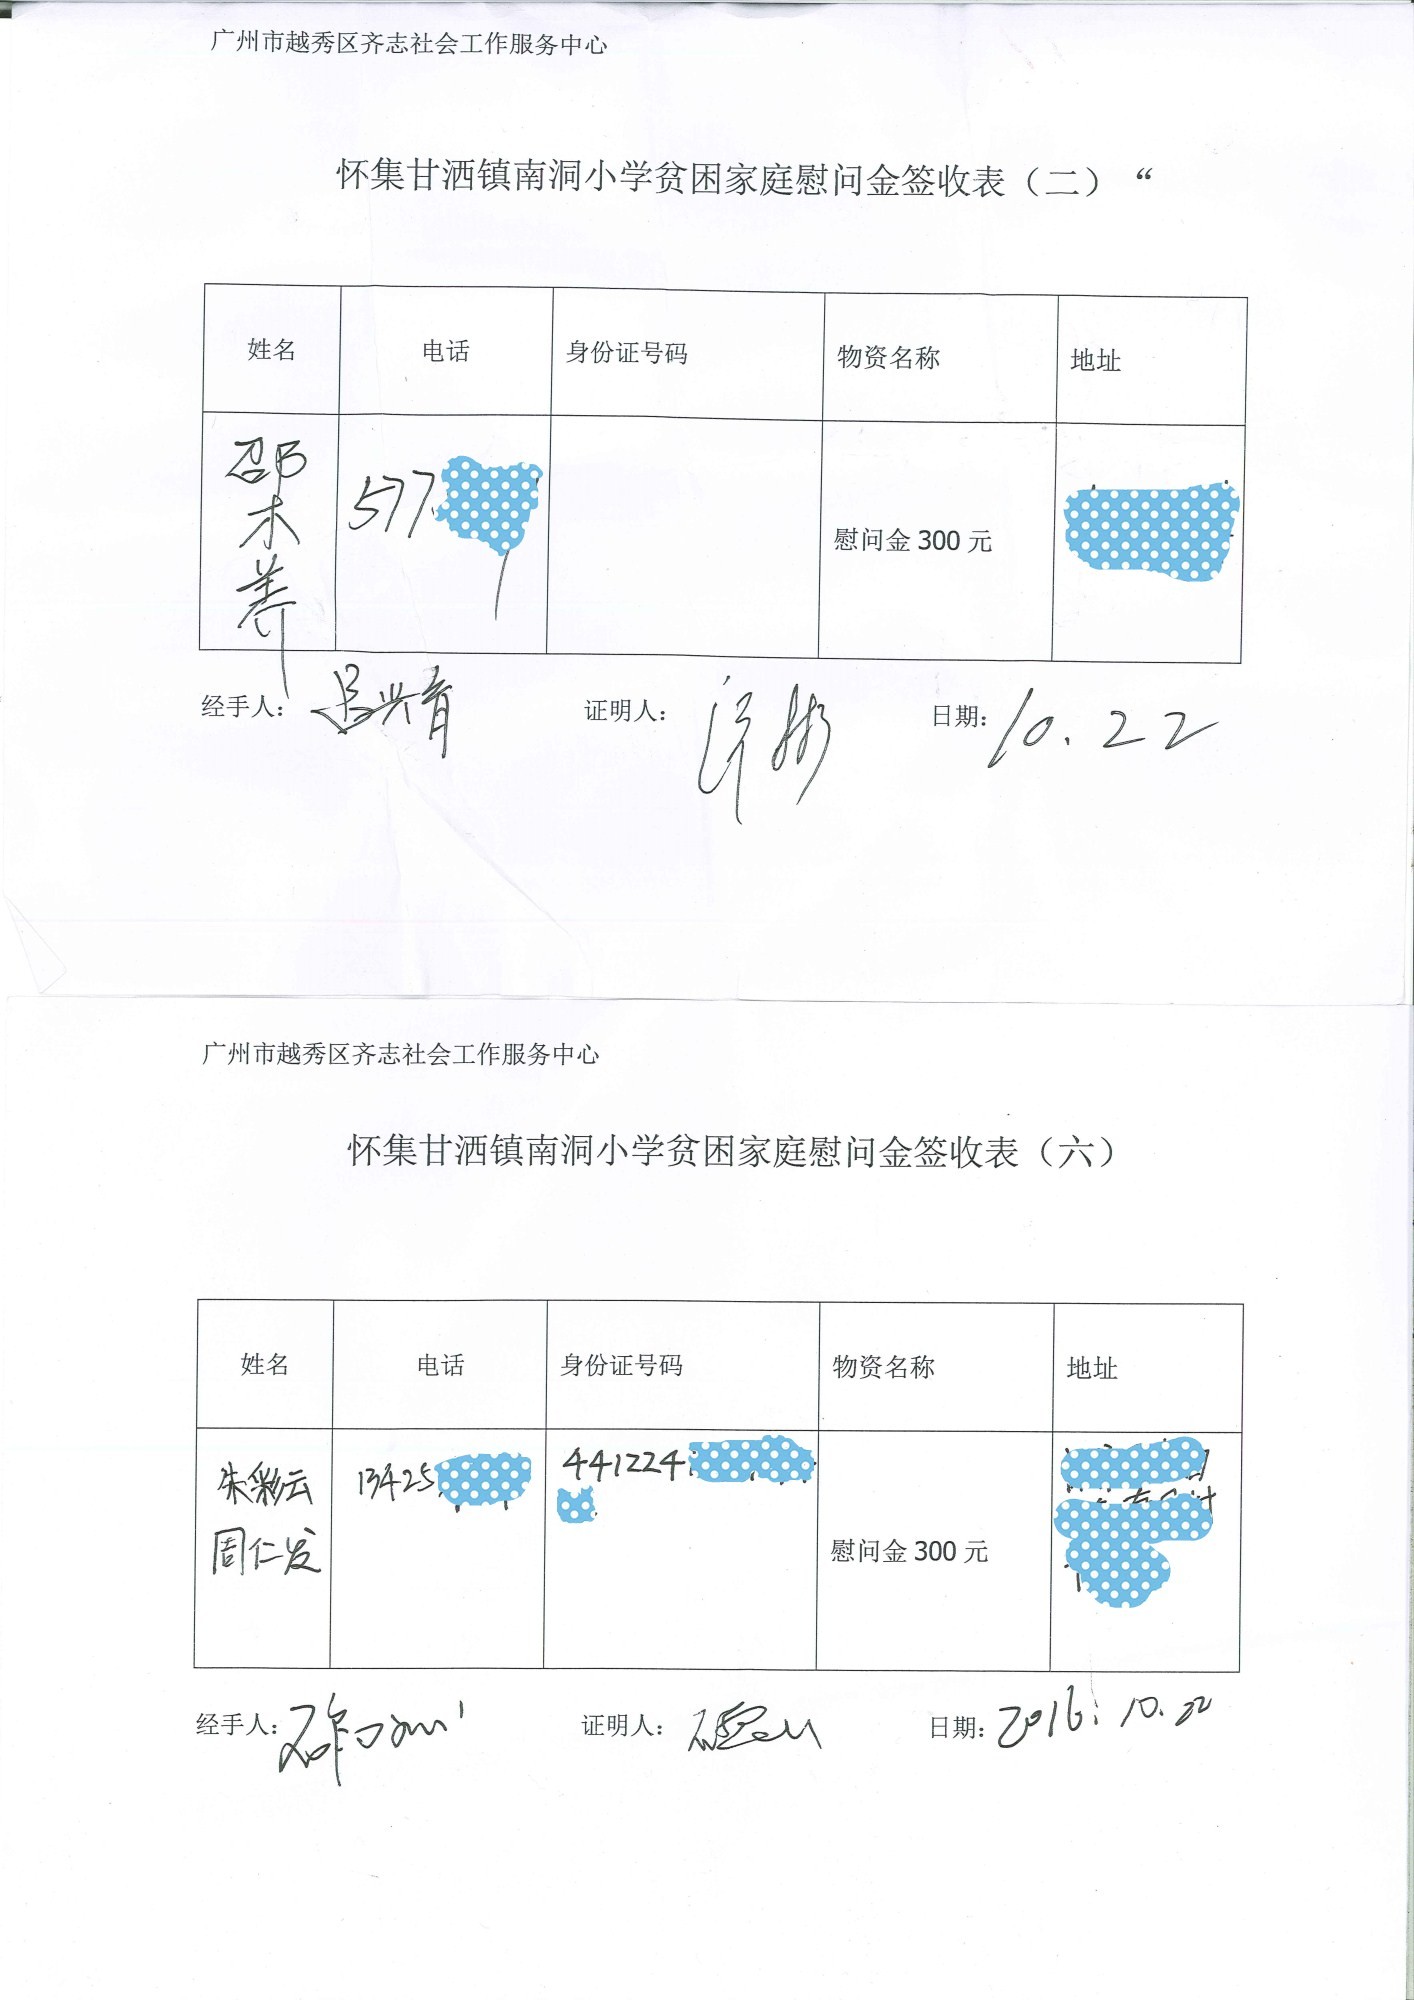 广州市越秀区齐志社会工作服务中心
怀集甘洒镇南洞小学贫困家庭慰问金签收表（二）“
姓名 电话 身份证号码 物资名称 地址
邵木养 577 慰问金300元
经手人： 证明人： 日期：10.22
广州市越秀区齐志社会工作服务中心
怀集甘洒镇南洞小学贫困家庭慰问金签收表（六）
姓名 电话 身份证号码 物资名称 地址
朱彩云 13425 441224
周仁发 慰问金300元
经手人： 证明人： 日期：2016.10.22